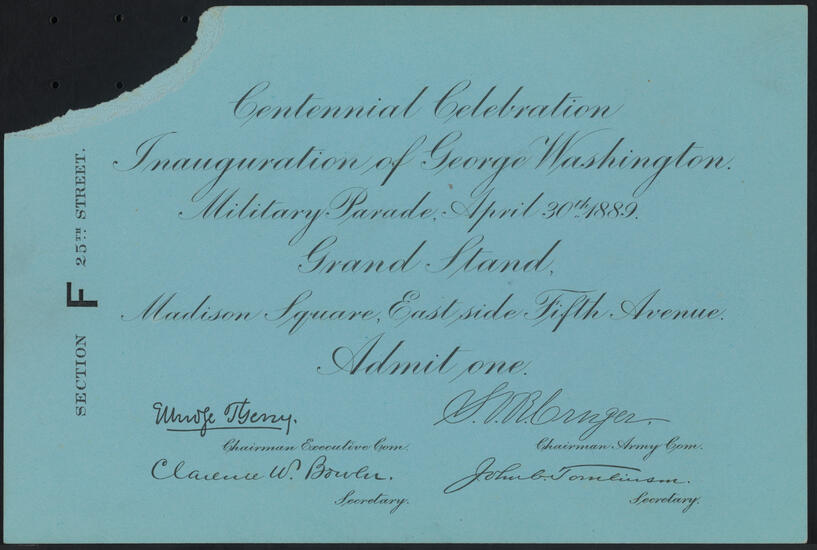 Centennial Celebration
Inauguration of George Washington.
Military Parade, April 30th 1889.
Grand Stand,
Madison Square, East side Fifth Avenue.
Admit one.
SECTION F 25TH STREET.
Elbridge T. Gerry.
Chairman Executive Com.
S. V. R. Cruger.
Chairman Army Com.
Clarence W. Bowen.
Secretary.
John C. Tomlinson.
Secretary.